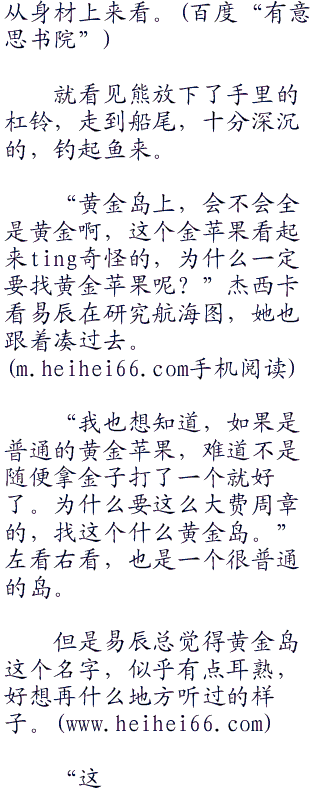 从身材上来看。(百度“有意
思书院”)
就看见熊放下了手里的
杠铃，走到船尾，十分深沉
的，钓起鱼来。
“黄金岛上，会不会全
是黄金啊，这个金苹果看起
来ting奇怪的，为什么一定
要找黄金苹果呢？”杰西卡
看易辰在研究航海图，她也
跟着凑过去。
(m.heihei66.com手机阅读)
“我也想知道，如果是
普通的黄金苹果，难道不是
随便拿金子打了一个就好
了。为什么要这么大费周章
的，找这个什么黄金岛。”
左看右看，也是一个很普通
的岛。
但是易辰总觉得黄金岛
这个名字，似乎有点耳熟，
好想再什么地方听过的样
子。(www.heihei66.com)
“这